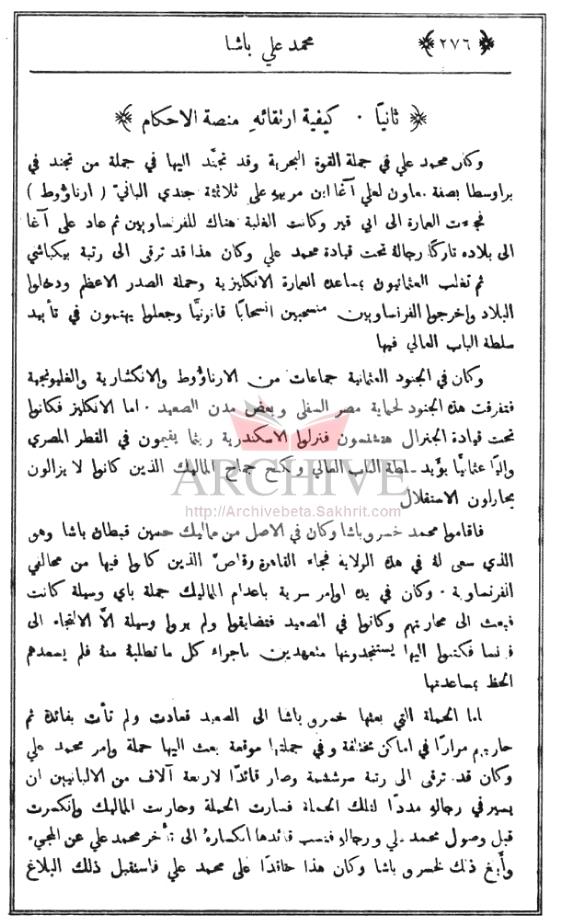 ﴿ ٢٧٦ ﴾
محمد علي باشا
﴿ ثانياً . كيفية ارتقائهِ منصة الاحكام ﴾
وكان محمد علي في جملة القوة البحرية وقد تجنَّد اليها في جملة من تجند في
براوسطا بصفة معاون لعلي آغا ابن مربيه على ثلاثمئة جندي الباني ( ارناؤوط )
فجاءت العمارة الى ابي قير وكانت الغلبة هناك للفرنساويين ثم عاد علي آغا
الى بلاده تاركًا رجالهُ تحت قيادة محمد علي وكان هذا قد ترقى الى رتبة بيكباشي
ثم تغلب العثمانيون بمساعدة العمارة الانكليزية وحملة الصدر الاعظم ودخلوا
البلاد واخرجوا الفرنساويين منسحبين انسحابًا قانونيًّا وجعلوا يهتمون في تأييد
سلطة الباب العالي فيها
وكان في الجنود العثمانية جماعات من الارناؤوط والانكشارية والغليونجية
فتفرقت هذه الجنود لحماية مصر السفلى وبعض مدن الصعيد . اما الانكليز فكانوا
تحت قيادة الجنرال هتشنسون فنزلوا الاسكندرية ريثما يقيمون في القطر المصري
واليًا عثمانيًّا يؤيد سلطة الباب العالي ويكبح جماح المماليك الذين كانوا لا يزالون
يحاولون الاستقلال
ARCHIVE
http://Archivebeta.Sakhrit.com
فاقاموا محمد خسرو باشا وكان في الاصل من مماليك حسين قبطان باشا وهو
الذي سعى لهُ في هذه الولاية فجاء القاهرة وقاصَّ الذين كانوا فيها من محالفي
الفرنساوية . وكان في يده اوامر سرية باعدام المماليك جملة باي وسيلة كانت
فبعث الى محاربتهم وكانوا في الصعيد فتضايقوا ولم يروا وسيلة الاَّ الالتجاء الى
فرنسا فكتبوا اليها يستنجدونها متعهدين باجراء كل ما تطلبهُ منهم فلم يسعدهم
الحظ بمساعدتها
اما الحملة التي بعثها خسرو باشا الى الصعيد فعادت ولم تأت بفائدة ثم
حاربهم مرارًا في اماكن مختلفة وفي جملتها موقعة بعث اليها حملة وامر محمد علي
وكان قد ترقى الى رتبة سرششمه وصار قائدًا لاربعة آلاف من الالبانيين ان
يسير في رجاله مددًا لتلك الحملة فسارت الحملة وحاربت المماليك وانكسرت
قبل وصول محمد علي ورجاله فنسب قائدها انكساره الى تأخر محمد علي عن المجيء
وأبلغ ذلك لخسرو باشا وكان هذا حاقدًا على محمد علي فاستقبل ذلك البلاغ